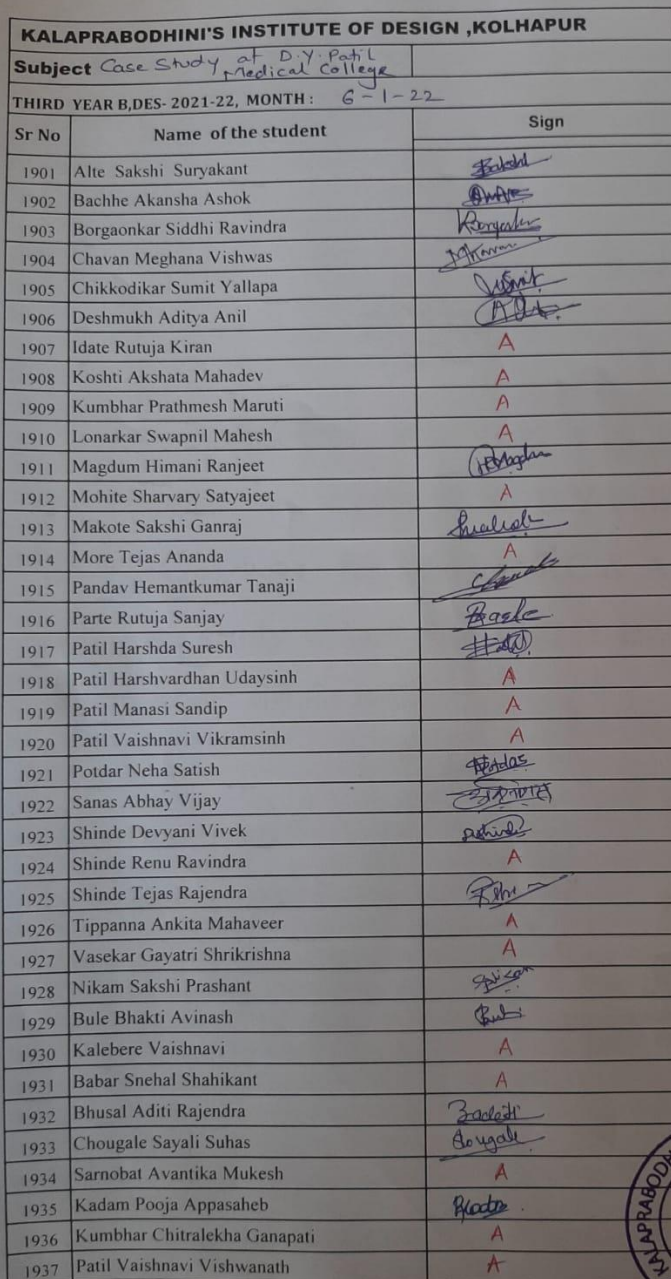 KALAPRABODHINI'S INSTITUTE OF DESIGN ,KOLHAPUR
Subject Case Study at D.Y. Patil
Medical College
THIRD YEAR B,DES- 2021-22, MONTH : 6-1-22
Sr No Name of the student Sign
1901 Alte Sakshi Suryakant
1902 Bachhe Akansha Ashok
1903 Borgaonkar Siddhi Ravindra
1904 Chavan Meghana Vishwas
1905 Chikkodikar Sumit Yallapa
1906 Deshmukh Aditya Anil
1907 Idate Rutuja Kiran A
1908 Koshti Akshata Mahadev A
1909 Kumbhar Prathmesh Maruti A
1910 Lonarkar Swapnil Mahesh A
1911 Magdum Himani Ranjeet
1912 Mohite Sharvary Satyajeet A
1913 Makote Sakshi Ganraj
1914 More Tejas Ananda A
1915 Pandav Hemantkumar Tanaji
1916 Parte Rutuja Sanjay
1917 Patil Harshda Suresh
1918 Patil Harshvardhan Udaysinh A
1919 Patil Manasi Sandip A
1920 Patil Vaishnavi Vikramsinh A
1921 Potdar Neha Satish
1922 Sanas Abhay Vijay
1923 Shinde Devyani Vivek
1924 Shinde Renu Ravindra A
1925 Shinde Tejas Rajendra
1926 Tippanna Ankita Mahaveer A
1927 Vasekar Gayatri Shrikrishna A
1928 Nikam Sakshi Prashant
1929 Bule Bhakti Avinash
1930 Kalebere Vaishnavi A
1931 Babar Snehal Shahikant A
1932 Bhusal Aditi Rajendra
1933 Chougale Sayali Suhas
1934 Sarnobat Avantika Mukesh A
1935 Kadam Pooja Appasaheb
1936 Kumbhar Chitralekha Ganapati A
1937 Patil Vaishnavi Vishwanath A